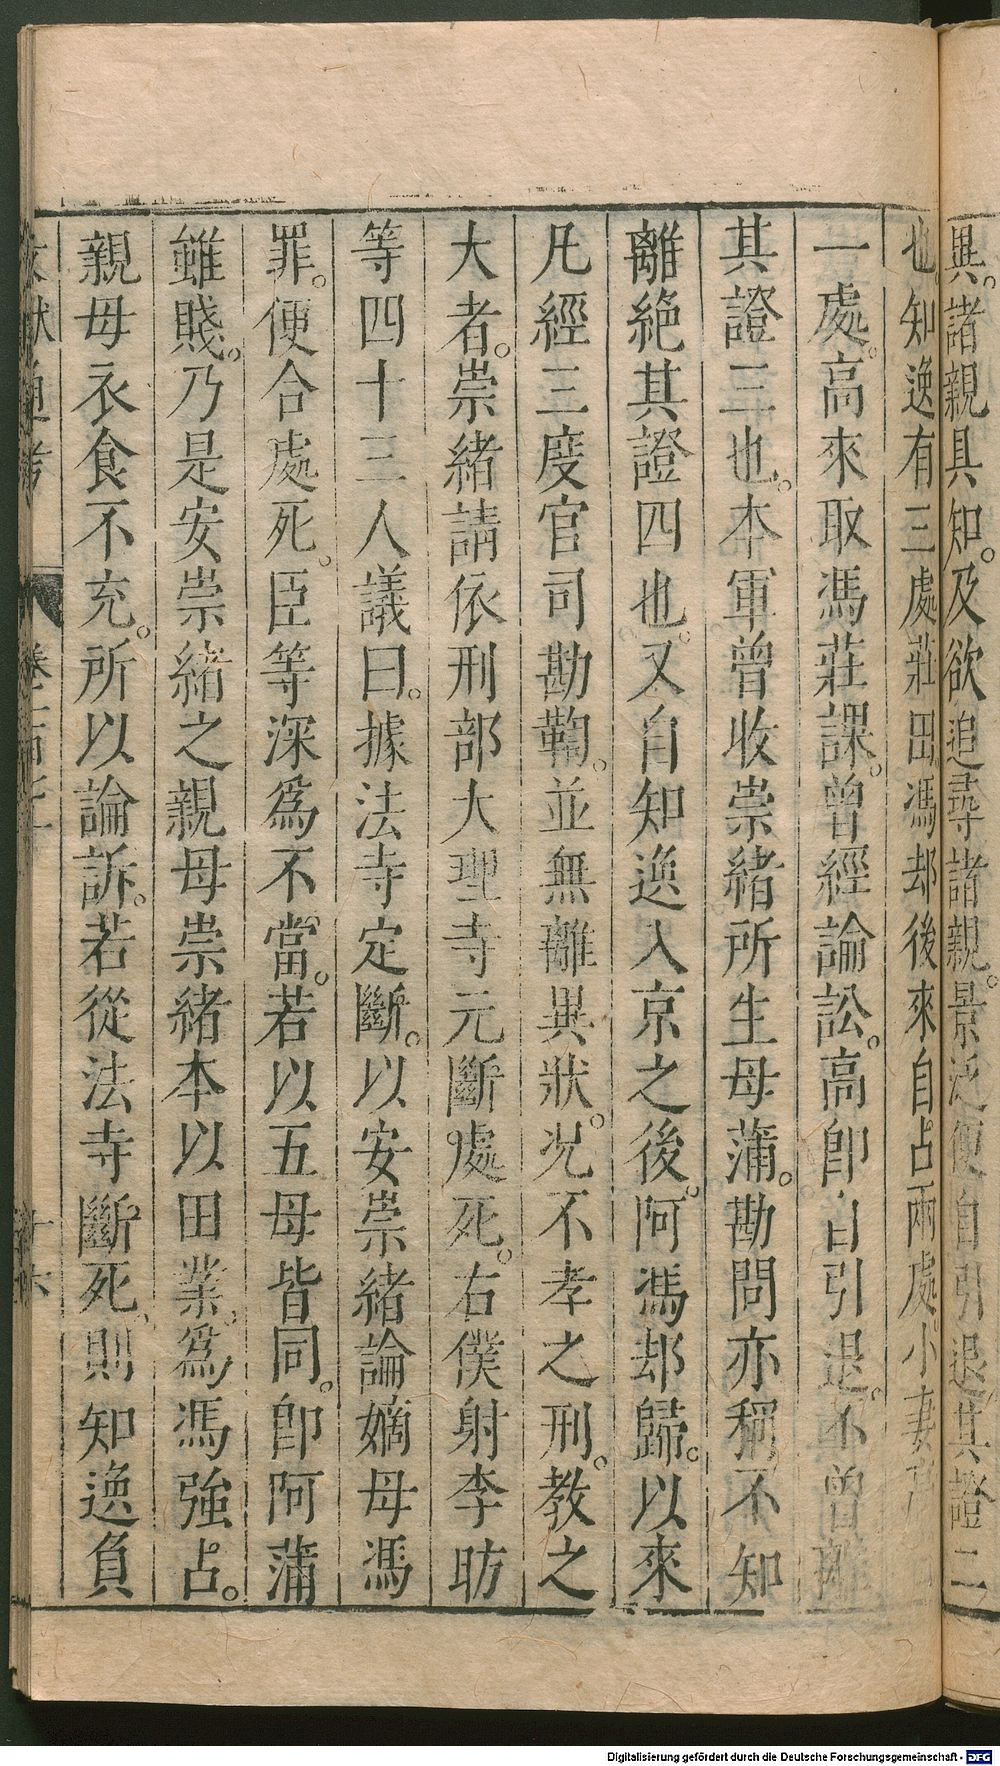 異。諸親具知。及欲追尋諸親。景泛便自引退其證二
也。知逸有三處莊田馮却後來自占兩處。小妻
一處。高來取馮莊課。曾經論訟。高即自引退。不曾離
其證三也。本軍曾收崇緒所生母蒲。勘問亦稱不知
離絶其證四也。又自知逸入京之後。阿馮却歸。以來
凡經三度官司勘鞫。並無離異狀。况不孝之刑。教之
大者。崇緒請依刑部大理寺元斷處死。右僕射李昉
等四十三人議曰。據法寺定斷。以安崇緒論嫡母馮
罪。便合處死。臣等深爲不當。若以五母皆同。即阿蒲
雖賤。乃是安崇緒之親母崇緒本以田業。爲馮強占。
親母衣食不充。所以論訴。若從法寺斷死。則知逸負
文獻通考 卷一百七十 十六
Digitalisierung gefördert durch die Deutsche Forschungsgemeinschaft - DFG